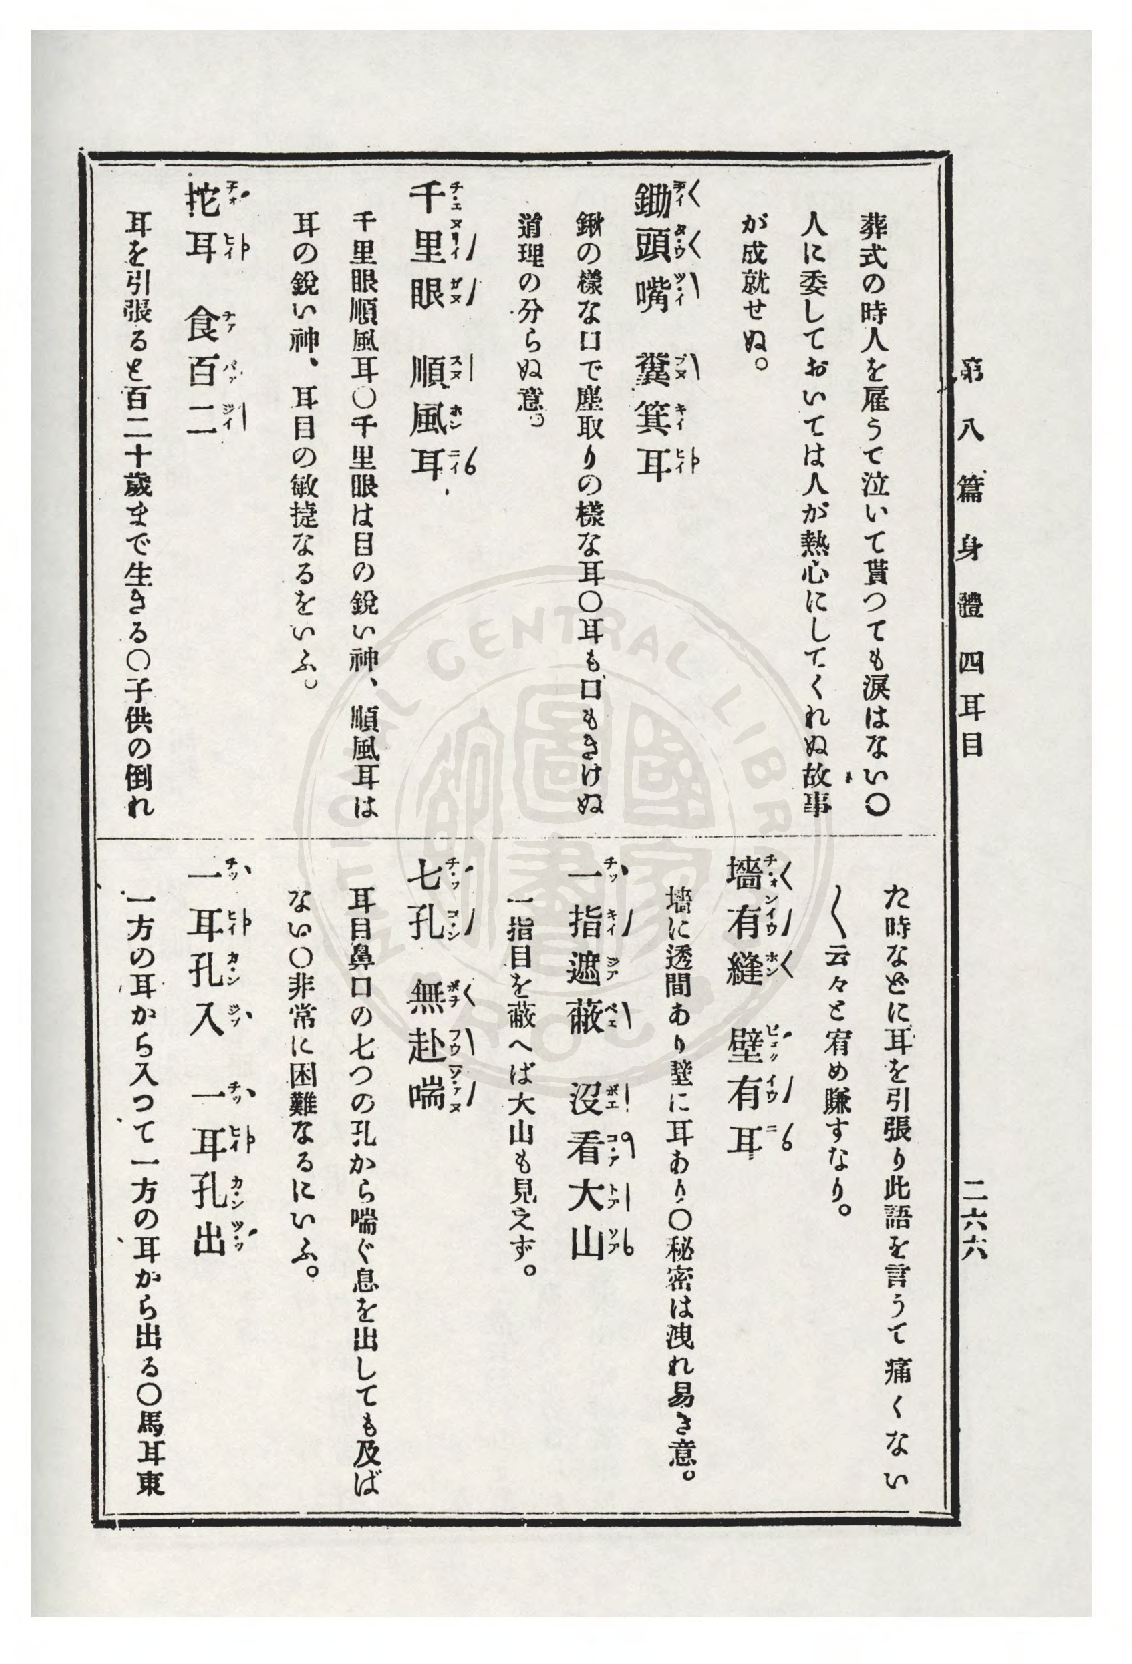 第八篇 身體 四 耳目
二六六
葬式の時人を雇うて泣いて貰つても淚はない〇
人に委しておいては人が熱心にしてくれぬ故事
が成就せぬ。
鋤頭嘴 糞箕耳
鍬の樣な口で塵取りの樣な耳〇耳も口もきけぬ
道理の分らぬ意。
千里眼 順風耳
千里眼順風耳〇千里眼は目の銳い神、順風耳は
耳の銳い神、耳目の敏捷なるをいふ。
拕耳 食百二
耳を引張ると百二十歲まで生きる〇子供の倒れ
た時などに耳を引張り此語を言うて痛くない
〱云々と宥め賺すなり。
墻有縫 壁有耳
墻に透間あり壁に耳あり〇秘密は洩れ易き意。
一指遮蔽 沒看大山
一指目を蔽へば大山も見えず。
七孔 無赴喘
耳目鼻口の七つの孔から喘ぐ息を出しても及ば
ない〇非常に困難なるにいふ。
一耳孔入 一耳孔出
一方の耳から入つて一方の耳から出る〇馬耳東
NATIONAL CENTRAL LIBRARY
R.O.C.
國家圖書館